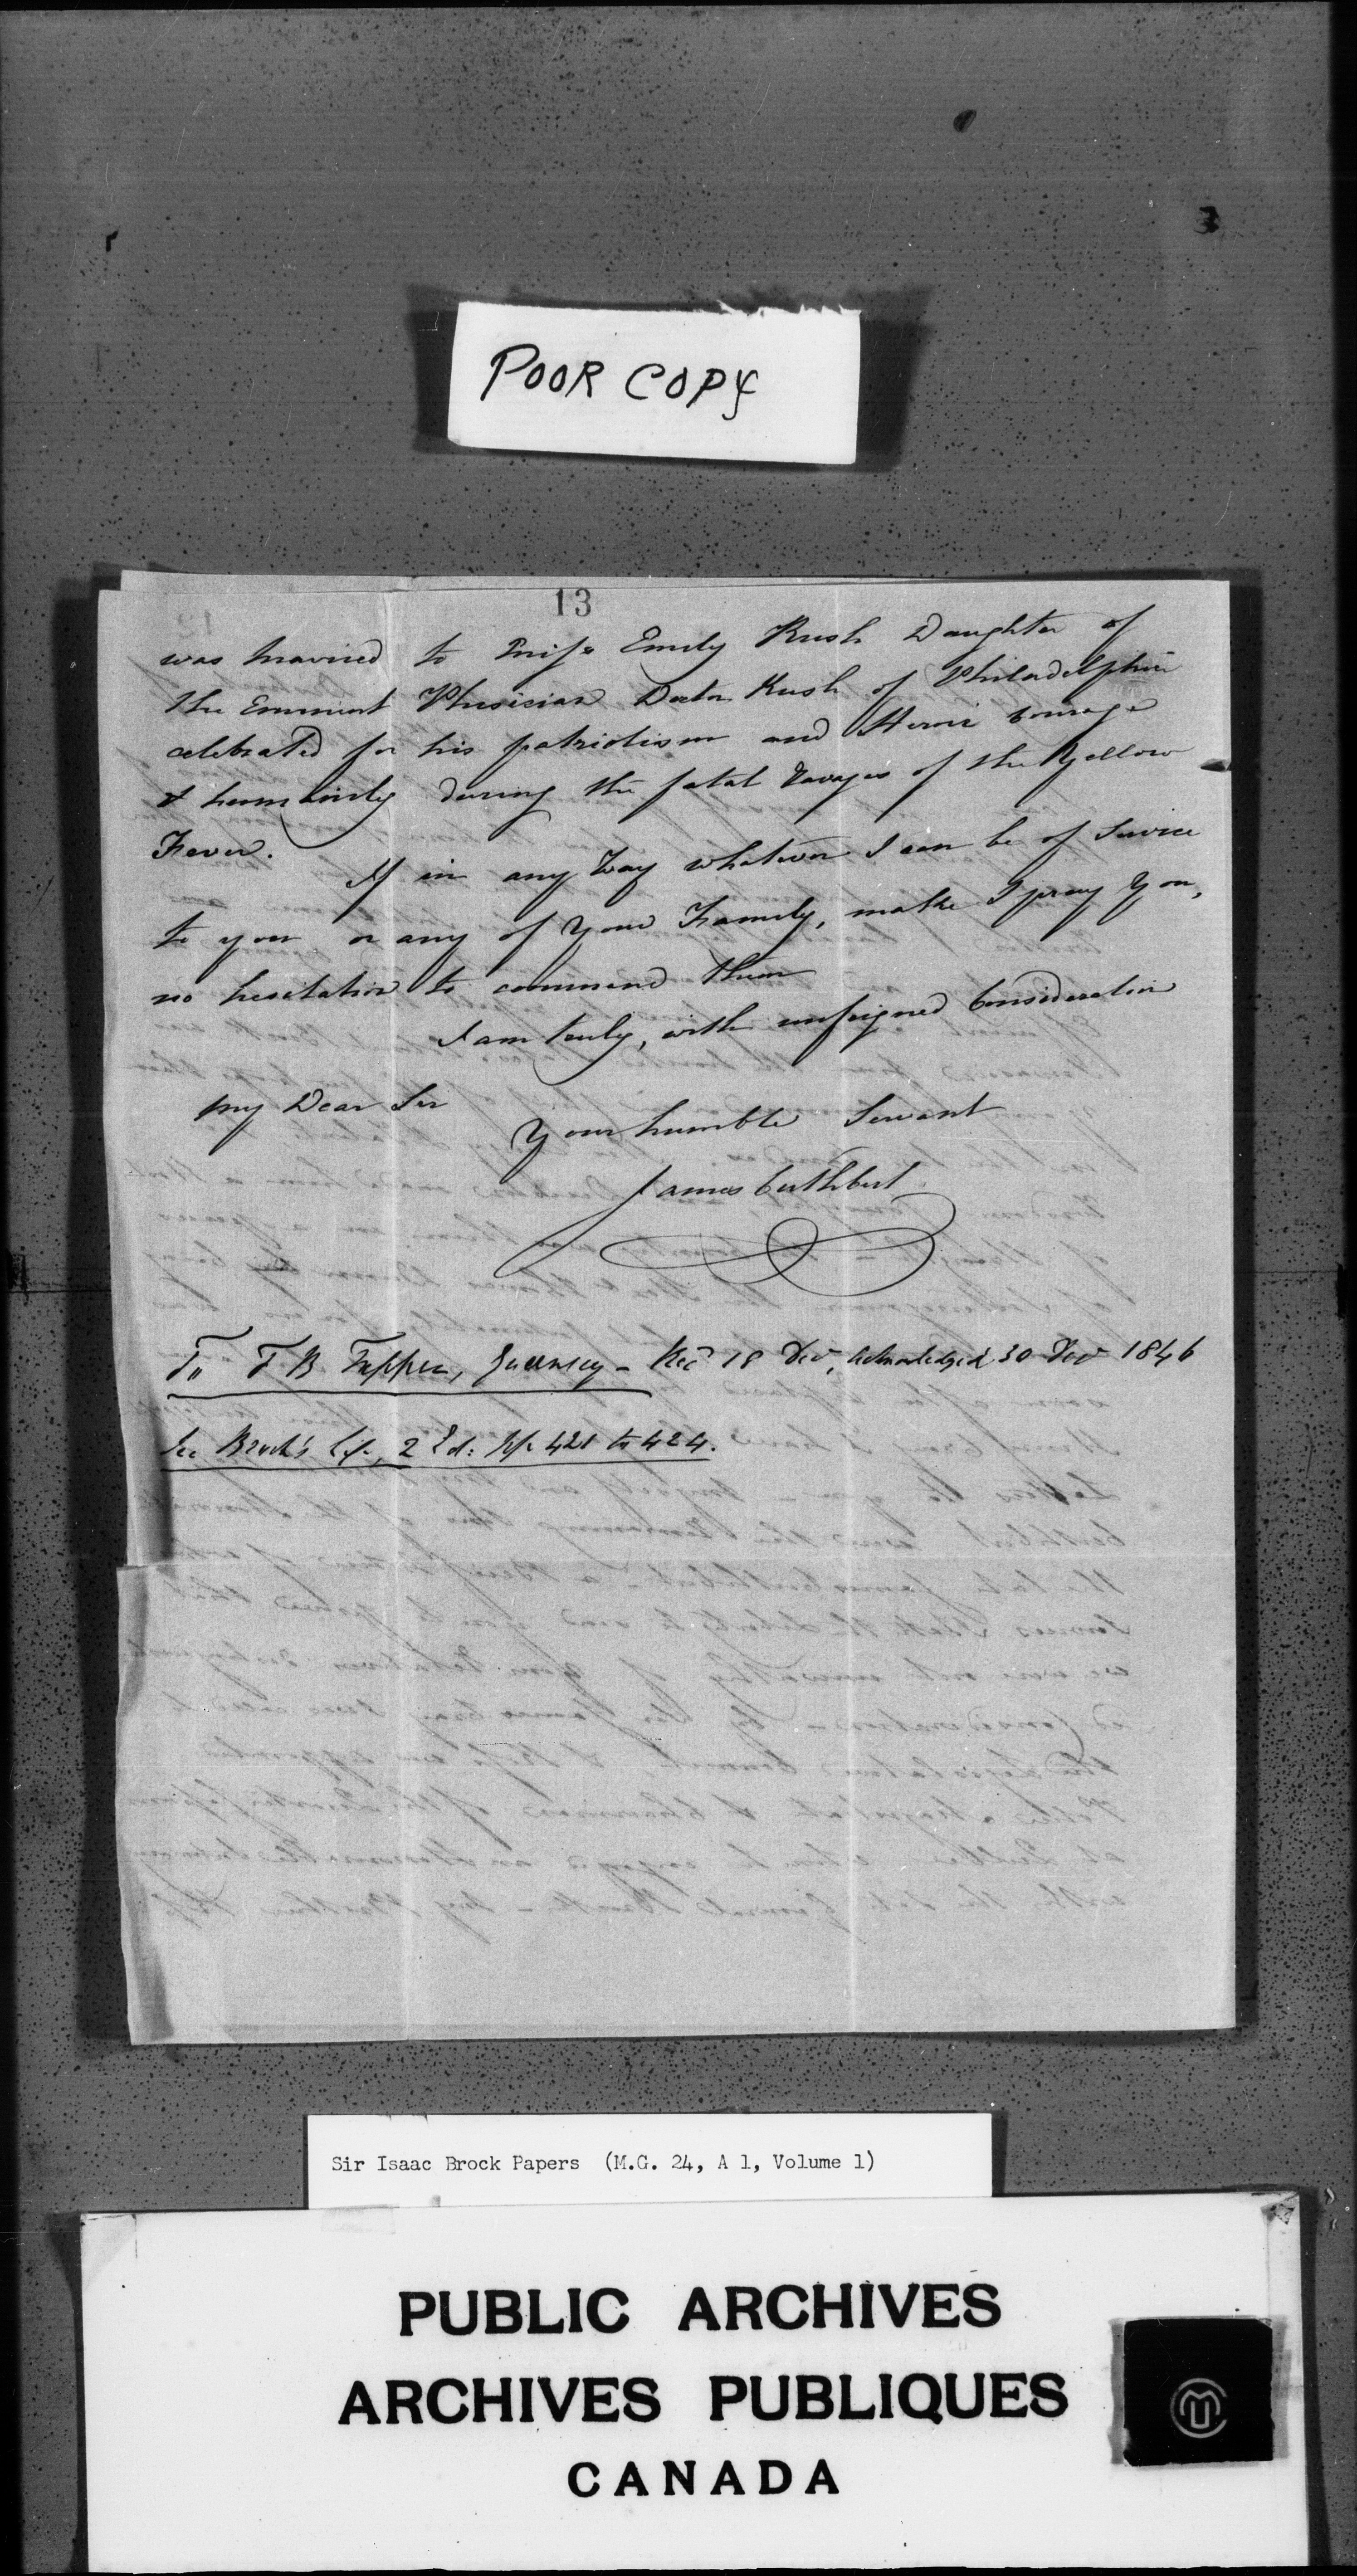 POOR COPY
13
was married to Miss Emily Rush Daughter of
the Eminent Phisician Doctor Rush of Philadelphia
celebrated for his patriotism and Heroic Courage
& humanity during the fatal ravages of the Yellow
Fever.
If in any Way whatever I can be of Service
to you or any of Your Family, make I pray You,
no hesitation to command them
I am truly, with unfeigned Consideration
My Dear Sir
Your humble Servant
James Cuthbert
To F B Tupper, Guernsey - Recd 18 Dec, acknowledged 30 Dec 1846
See Brock's life, 2 Ed: pp 421 to 424.
Sir Isaac Brock Papers (M.G. 24, A 1, Volume 1)
PUBLIC ARCHIVES
ARCHIVES PUBLIQUES
CANADA